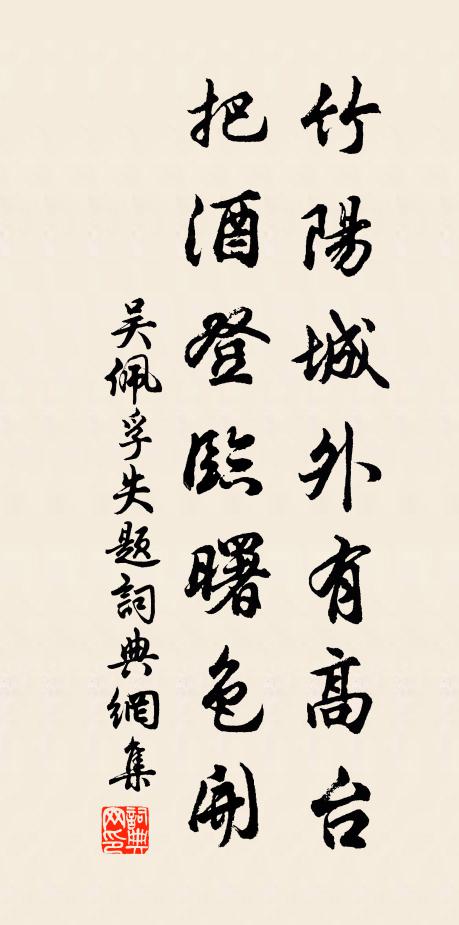 竹陽城外有高台
把酒登臨曙色開
吳佩孚失题詞典網集
詞典网印